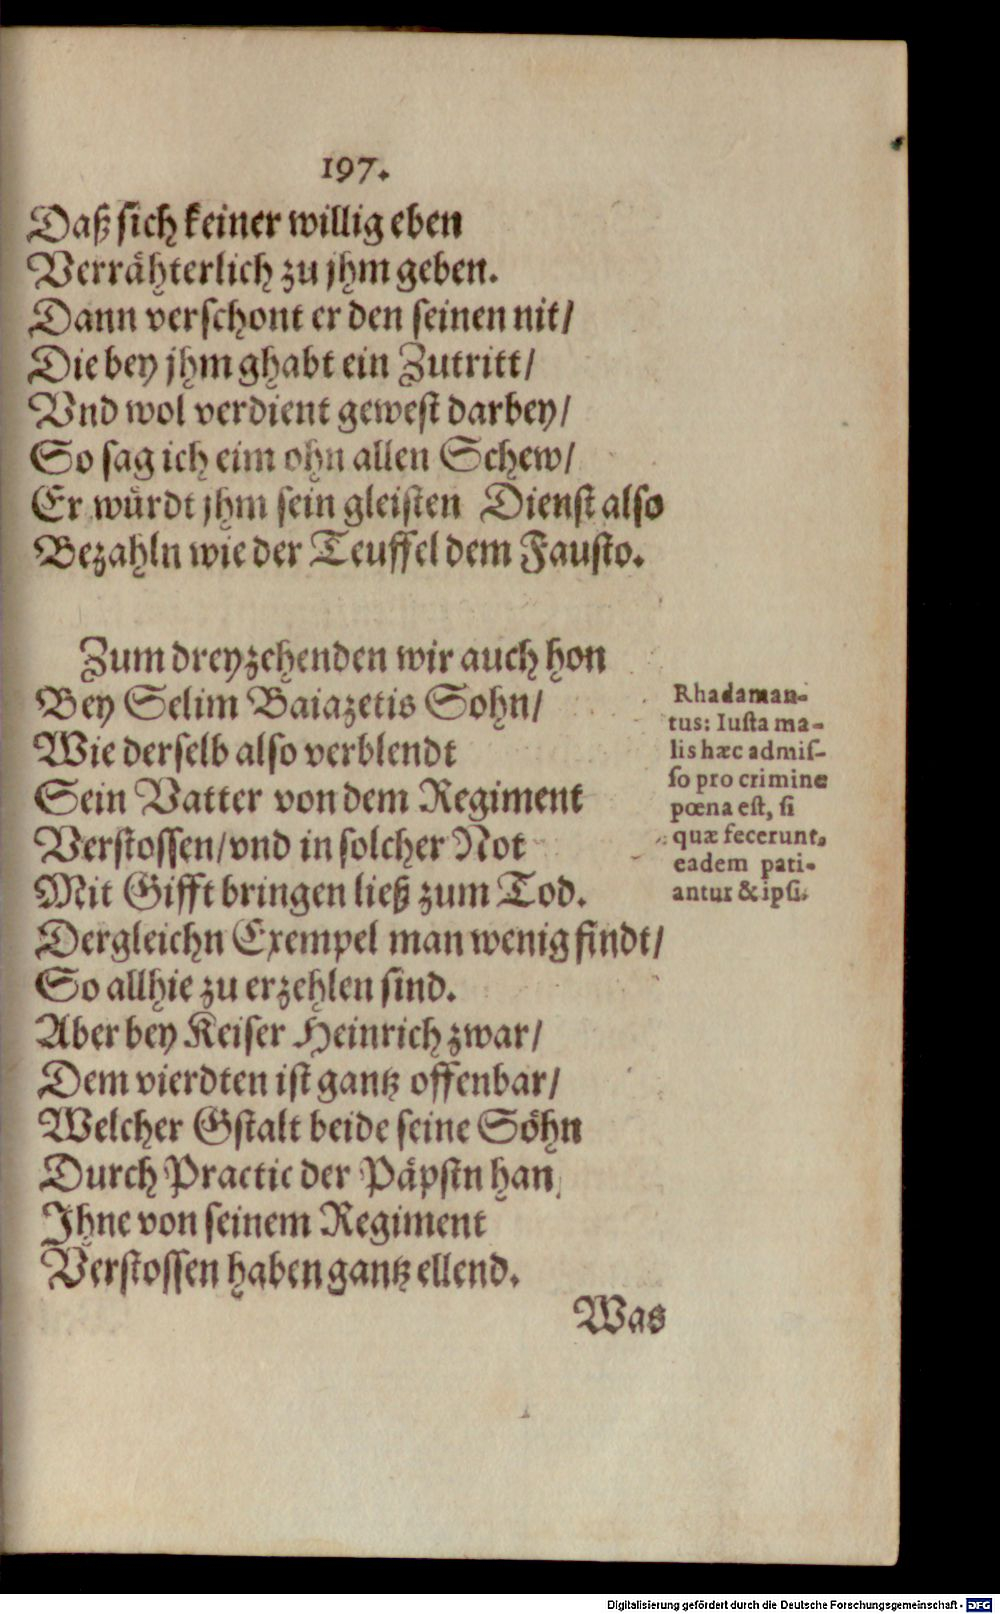 197.
Daß sich keiner willig eben
Verrähterlich zu jhm geben.
Dann verschont er den seinen nit/
Die bey jhm ghabt ein Zutritt/
Vnd wol verdient gewest darbey/
So sag ich eim ohn allen Schew/
Er würdt jhm sein gleisten Dienst also
Bezahln wie der Teuffel dem Fausto.
Zum dreyzehenden wir auch hon
Bey Selim Baiazetis Sohn/
Wie derselb also verblendt
Sein Vatter von dem Regiment
Verstossen/ vnd in solcher Not
Mit Gifft bringen ließ zum Tod.
Dergleichn Exempel man wenig findt/
So allhie zu erzehlen sind.
Aber bey Keiser Heinrich zwar/
Dem vierdten ist gantz offenbar/
Welcher Gstalt beide seine Söhn
Durch Practic der Päpstn han
Ihne von seinem Regiment
Verstossen haben gantz ellend.
Was
Rhadaman-
tus: Iusta ma-
lis hæc admis-
so pro crimine
pœna est, si
quæ fecerunt,
eadem pati-
antur & ipsi.
Digitalisierung gefördert durch die Deutsche Forschungsgemeinschaft - DFG